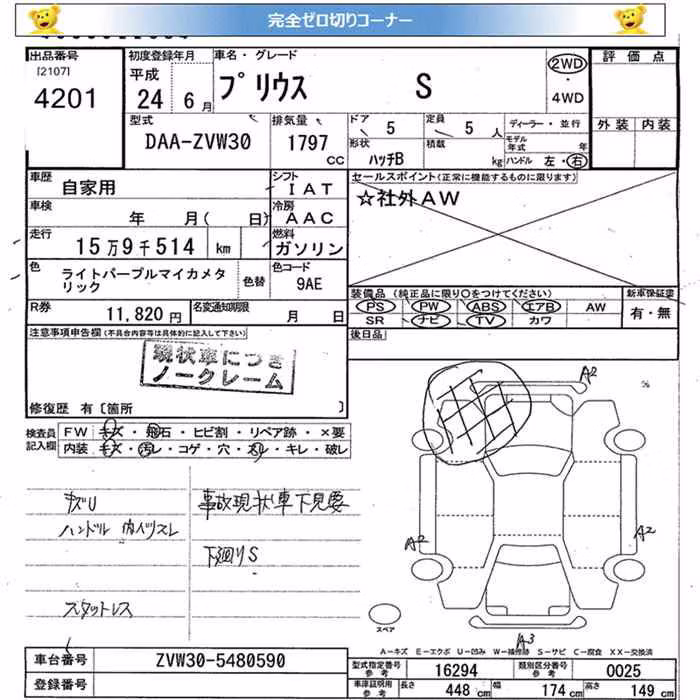 完全ゼロ切りコーナー
出品番号
[2107]
4201
初度登録年月
平成
24 6月
車名・グレード
プリウス S
2WD
4WD
評価点
外装 内装
型式
DAA-ZVW30
排気量
1797
CC
ドア
5
定員
5 人
形状
ハッチB
積載
kg
ディーラー・並行
モデル年式 年
ハンドル 左・右
車歴
自家用
シフト
IAT
セールスポイント(正常に機能するものに限ります)
☆社外AW
車検
年 月( 日)
冷房
AAC
走行
15万9千514 km
燃料
ガソリン
色
ライトパープルマイカメタリック
色替
色コード
9AE
R券
11,820 円
名変通知期限
月 日
装備品(純正品に限り○をつけてください)
PS PW ABS エアB AW
SR ナビ TV カワ
新車保証書
有・無
後日品
注意事項申告欄(不具合内容等は具体的に記入して下さい)
現状車につき
ノークレーム
修復歴 有〔箇所 〕
検査員記入欄
FW キズ・飛石・ヒビ割・リペア跡・×要
内装 キズ・汚レ・コゲ・穴・スレ・キレ・破レ
キズU
ハンドル 内ハリスレ
スタットレス
事故現状車下見要
下廻りS
A2
A2
A2
A3
スペア
A-キズ E-エクボ U-凹み W-補修跡 S-サビ C-腐食 XX-交換済
車台番号
ZVW30-5480590
登録番号
型式指定番号
参考
16294
類別区分番号
参考
0025
車庫証明用
参考
長さ 448 cm 幅 174 cm 高さ 149 cm